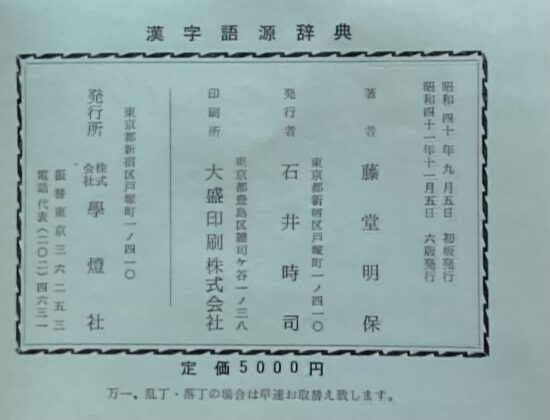 漢字語源辞典
昭和四十年九月五日 初版発行
昭和四十一年十一月五日 六版発行
著者 藤堂明保
東京都新宿区戸塚町一ノ四一〇
発行者 石井時司
東京都豊島区雑司ケ谷一ノ三八
印刷所 大盛印刷株式会社
東京都新宿区戸塚町一ノ四一〇
発行所 株式会社 學燈社
振替東京三六二五三
電話代表(二〇二)四六三一
定価5000円
万一、乱丁・落丁の場合は早速お取替え致します。